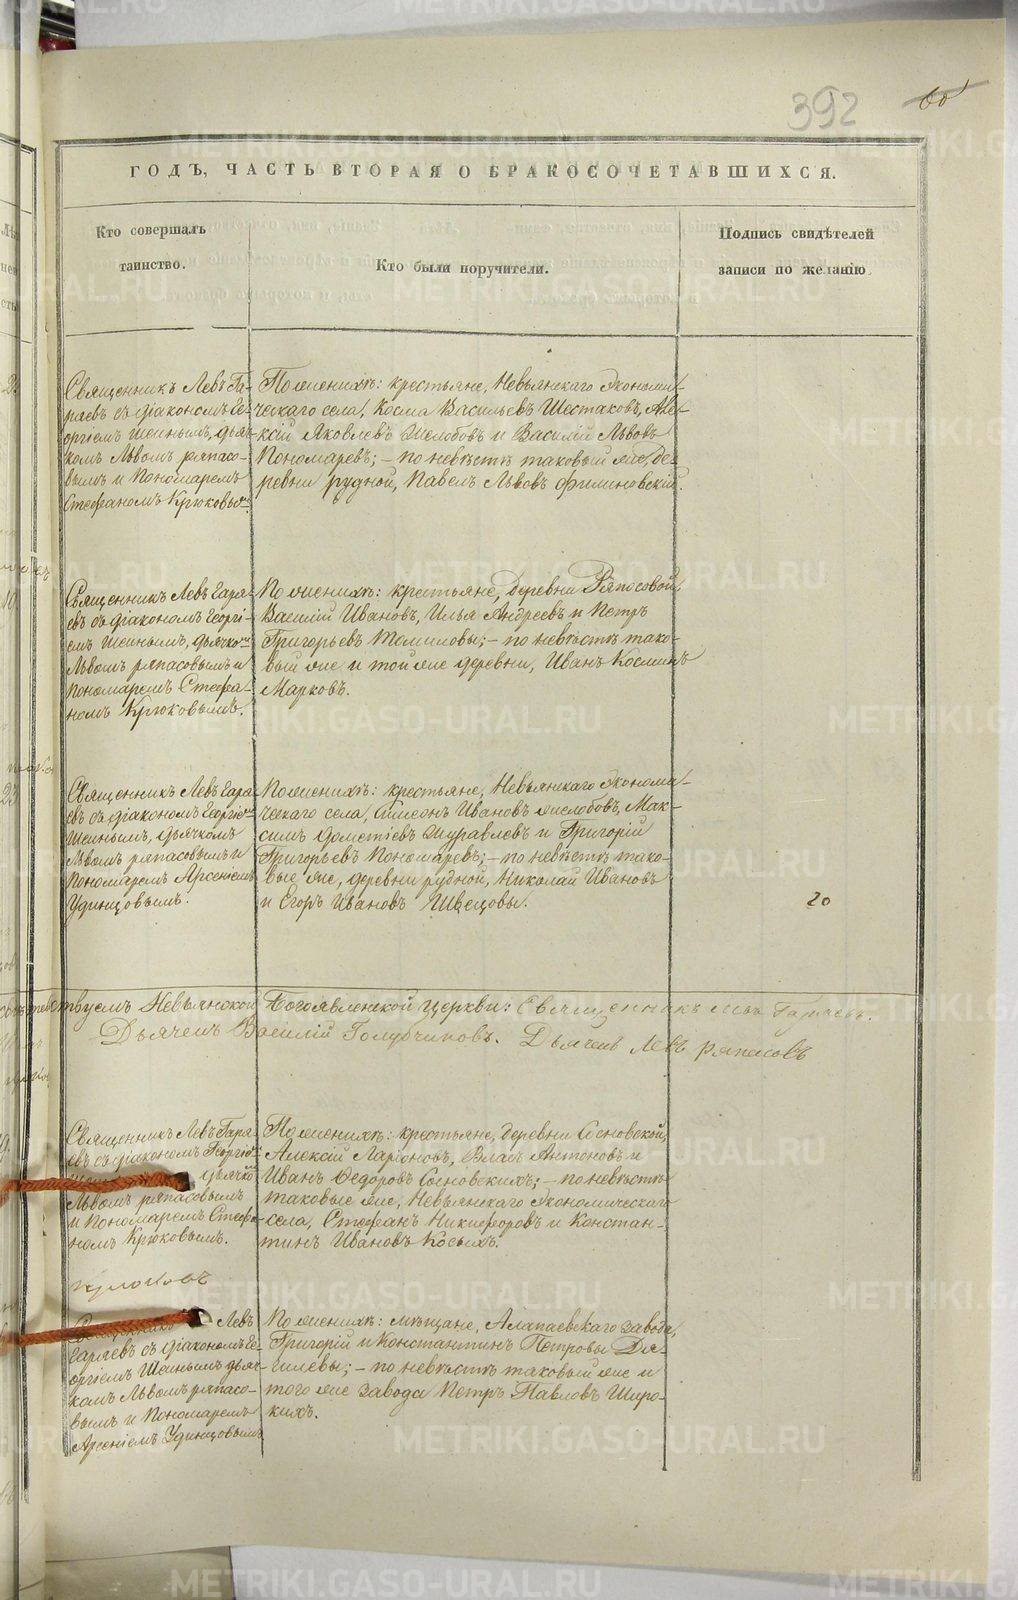 392
60
ГОДЪ, ЧАСТЬ ВТОРАЯ О БРАКОСОЧЕТАВШИХСЯ.
Кто совершалъ
таинство.
Кто были поручители.
Подпись свидѣтелей
записи по желанію.
Священникъ Левъ Га-
ряевъ съ діакономъ Ге-
оргіемъ Шеинымъ, дьяч-
комъ Львомъ Ряпасо-
вымъ и Пономаремъ
Стефаномъ Крюковымъ.
По женихѣ: крестьяне, Невьянскаго Экономи-
ческаго села, Косма Васильевъ Шестаковъ, Але-
ксій Яковлевъ Желобовъ и Василій Львовъ
Пономаревъ; – по невѣстѣ таковый же, де-
ревни Рудной, Павелъ Львовъ Филиновскій.
Священникъ Левъ Гаря-
евъ съ діакономъ Георгі-
емъ Шеинымъ, дьячкомъ
Львомъ Ряпасовымъ и
Пономаремъ Стефа-
номъ Крюковымъ.
По женихѣ: крестьяне, деревни Ряпосовой,
Василій Ивановъ, Илья Андреевъ и Петръ
Григорьевъ Томиловы; – по невѣстѣ тако-
вый же и той же деревни, Иванъ Косминъ
Марковъ.
Священникъ Левъ Гаря-
евъ съ діакономъ Георгіемъ
Шеинымъ, дьячкомъ
Львомъ Ряпасовымъ и
Пономаремъ Арсеніемъ
Удинцовымъ.
По женихѣ: крестьяне, Невьянскаго Эконома-
ческаго села, Симеонъ Ивановъ Желобовъ, Мак-
симъ Дометіевъ Журавлевъ и Григорій
Григорьевъ Пономаревъ; – по невѣстѣ тако-
вые же, деревни Рудной, Николай Ивановъ
и Егоръ Ивановъ Швецовы.
20
Невьянской Богоявленской церкви: Священникъ Левъ Гаряевъ.
Дьячекъ Василій Голубчиковъ. Дьячекъ Левъ Ряпасовъ
Священникъ Левъ Гаря-
евъ съ діакономъ Георгіе-
дьячко
Львомъ Ряпасовымъ
и Пономаремъ Стефа-
номъ Крюковымъ.
По женихѣ: крестьяне, деревни Сосновской,
Алексій Ларіоновъ, Власъ Антоновъ и
Иванъ Ѳедоровъ Сосновскихъ; – по невѣстѣ
таковые же, Невьянскаго Экономическаго
села, Стефанъ Никифоровъ и Констан-
тинъ Ивановъ Косыхъ.
Крюковъ
Священникъ Левъ
Гаряевъ съ діакономъ Ге-
оргіемъ Шеинымъ, дьяч-
комъ Львомъ Ряпасо-
вымъ и Пономаремъ
Арсеніемъ Удинцовымъ
По женихѣ: мѣщане, Алапаевскаго завода,
Григорій и Константинъ Петровы Дя-
гилевы; – по невѣстѣ таковый же и
того же завода Петръ Павловъ Широ-
кихъ.
METRIKI.GASO-URAL.RU